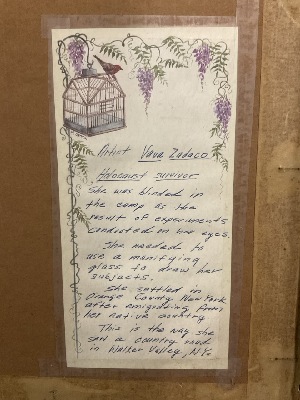 Artist Vava Zadaco
Holocaust survivor
She was blinded in
the camp as the
result of experiments
conducted on her eyes.
She needed to
use a manifying
glass to draw her
subjects.
She settled in
Orange County New York
after emigrating from
her native country
This is the way she
saw a country road
in Walker Valley, NY.